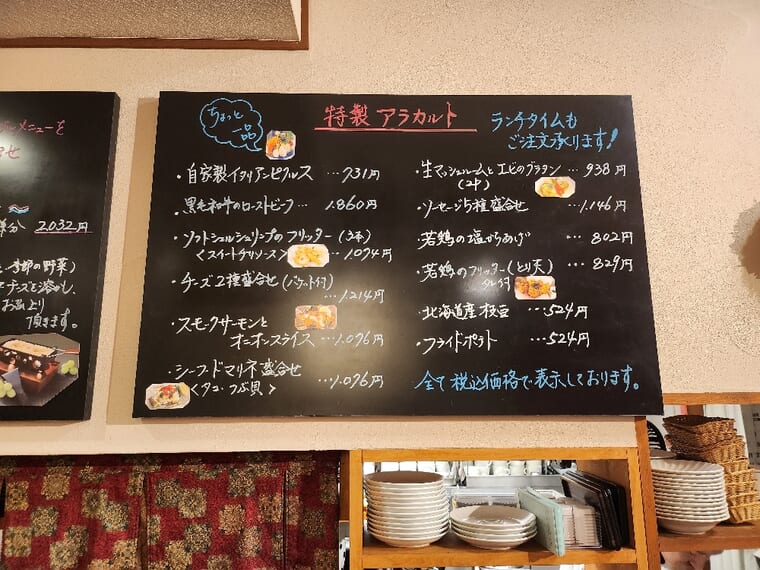 ちょっと
一品
特製 アラカルト
ランチタイムも
ご注文承ります!
・自家製イタリアンピクルス …731円
・黒毛和牛のローストビーフ… 1.860円
・ソフトシェルシュリンプのフリッター(3本)
<スイートチリソース> …1.074円
・チーズ2種盛合せ(バケット付)
…1.214円
・スモークサーモンと
オニオンスライス …1.096円
・シーフードマリネ盛合せ
<タコ・つぶ貝> …1.096円
・生マッシュルームとエビのグラタン …938円
・ソーセージ5種盛合せ …1.146円
・若鶏の塩からあげ … 802円
・若鶏のフリッター(とり天) …829円
タレ付
・北海道産枝豆 …524円
・フライドポテト …524円
全て税込価格で表示しております。
メニューを
2.032円
季節の野菜)
チーズを溶かし、
お召し上り
頂きます。